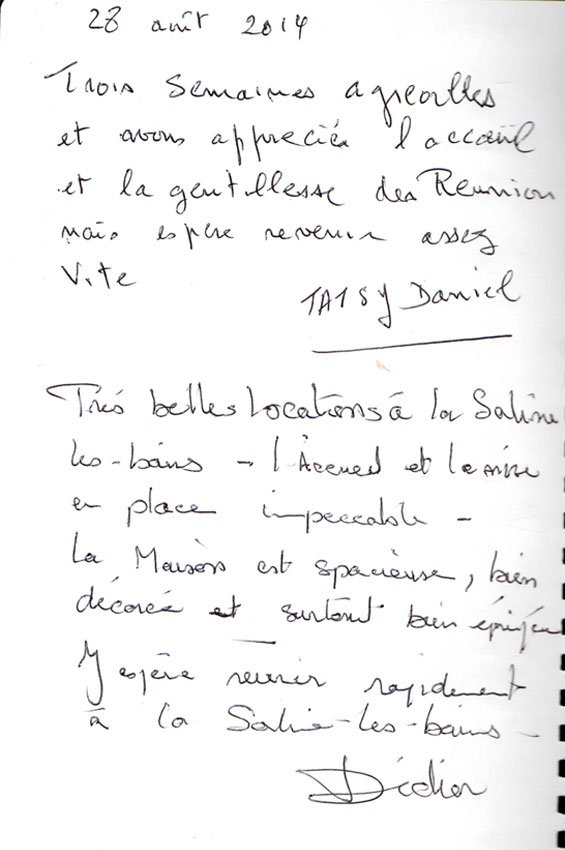 28 août 2014
Trois semaines agréables
et avons appréciés l'accueil
et la gentillesse des Reunion
nais espère revenir assez
Vite
TATSY Daniel
Très belles locations à la Saline
les-bains - l'Accueil et la mise
en place impeccable -
La Maison est spacieuse, bien
décorée et surtout bien
J'espère revenir rapidement
à la Saline-les-bains -
Didier